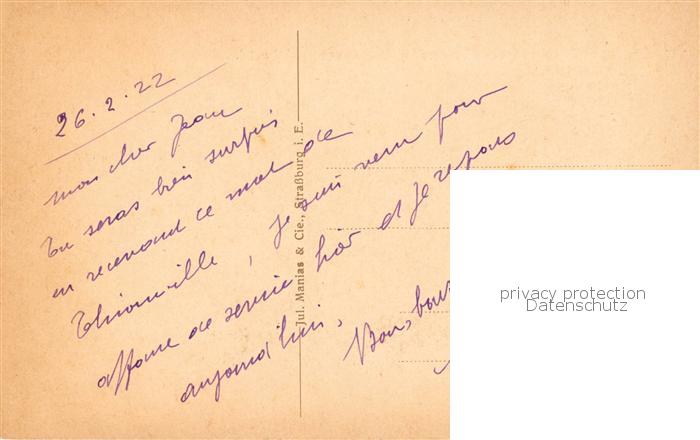 26.2.22
mon cher Jean
Tu seras bien surpris
en recevant ce mot de
Thionville, je suis venu pour
affaire de service hier et je repars
aujourd'hui,
Bons
Jul. Manias & Cie., Straßburg i. E.
privacy protection
Datenschutz